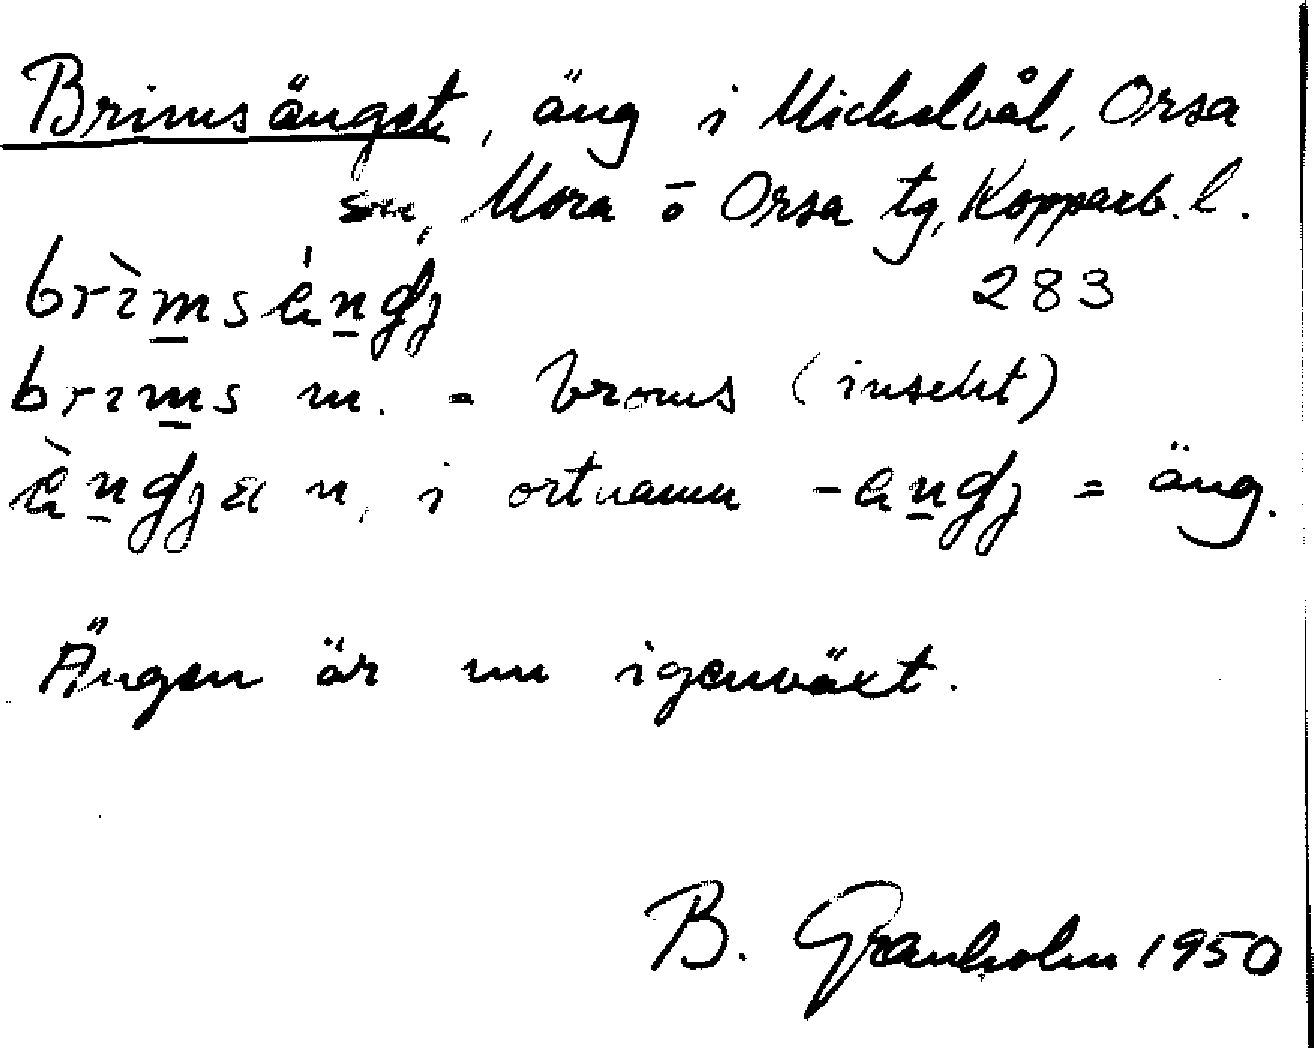 Brimsänget, äng i Michelvål, Orsa
sn, Mora o Orsa tg, Kopparb. l.
brìmsáŋgj 283
brims m. = broms (insekt)
n. i ortnamn = äng.
Ängen är nu igenväxt.
B. Granholm 1950